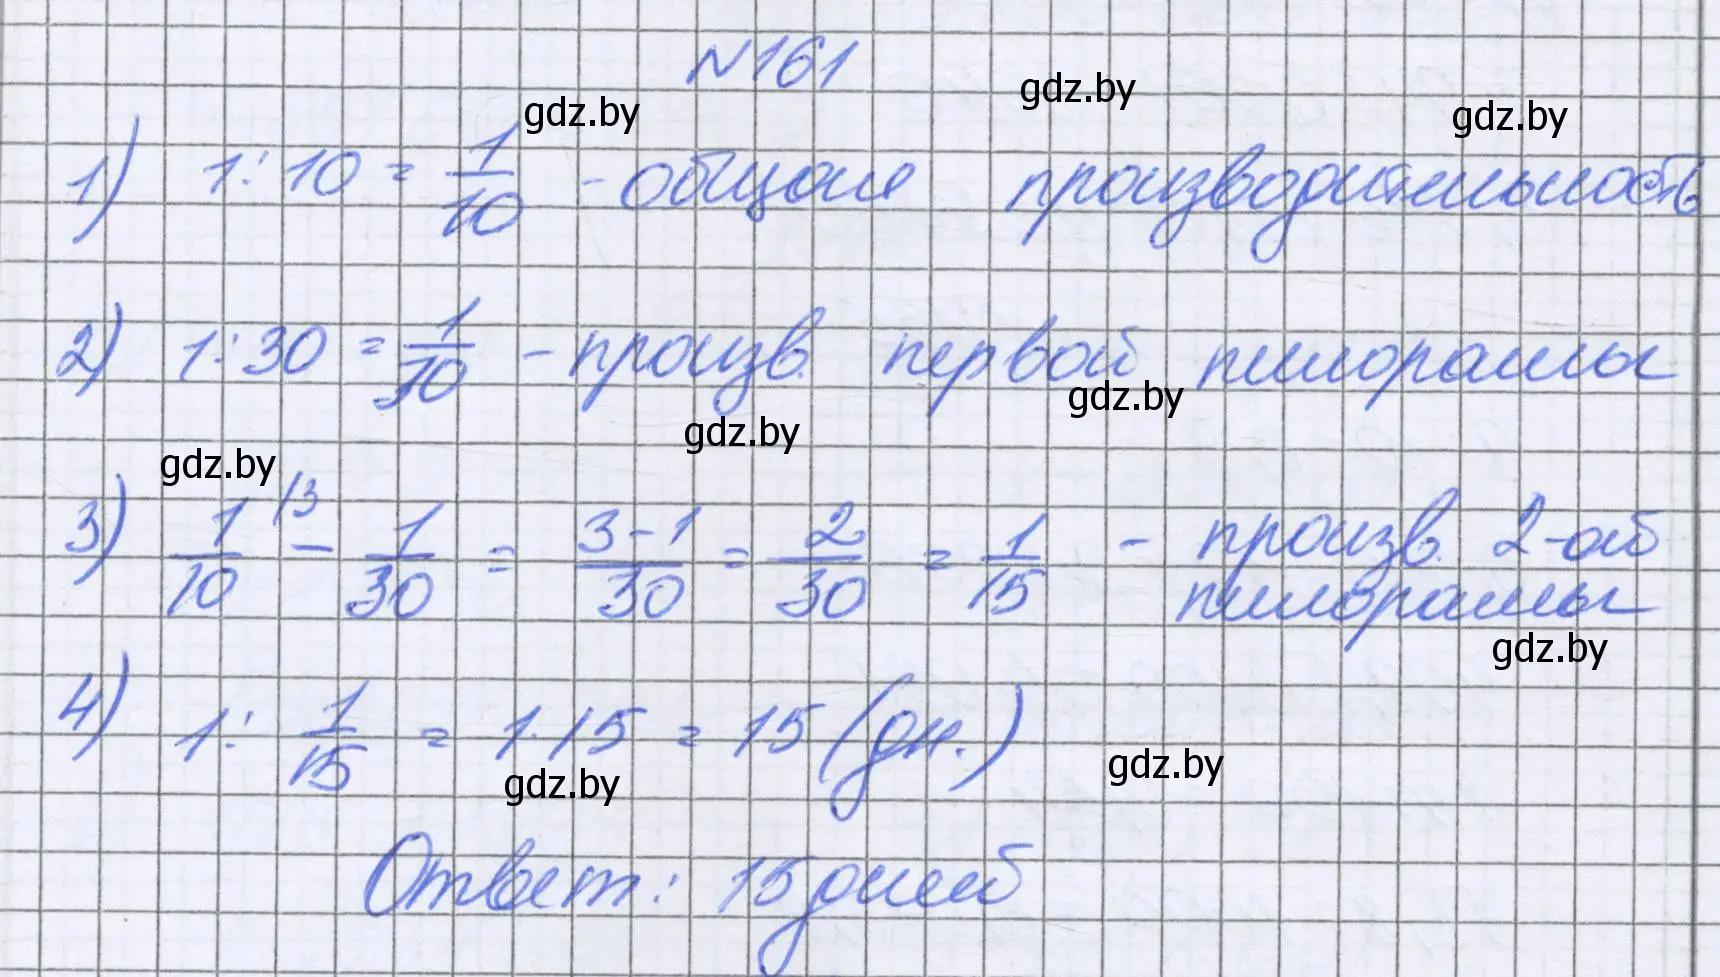 №161
gdz.by gdz.by gdz.by
1) 1:10 = 1/10 - общая производительность
2) 1:30 = 1/30 - произв. первой пилорамы
gdz.by
gdz.by
gdz.by
3) 1/10 /3 - 1/30 = 3-1/30 = 2/30 = 1/15 - произв. 2-ой
пилорамы
gdz.by
4) 1: 1/15 = 1·15 = 15 (дн.)
gdz.by
gdz.by
Ответ: 15 дней